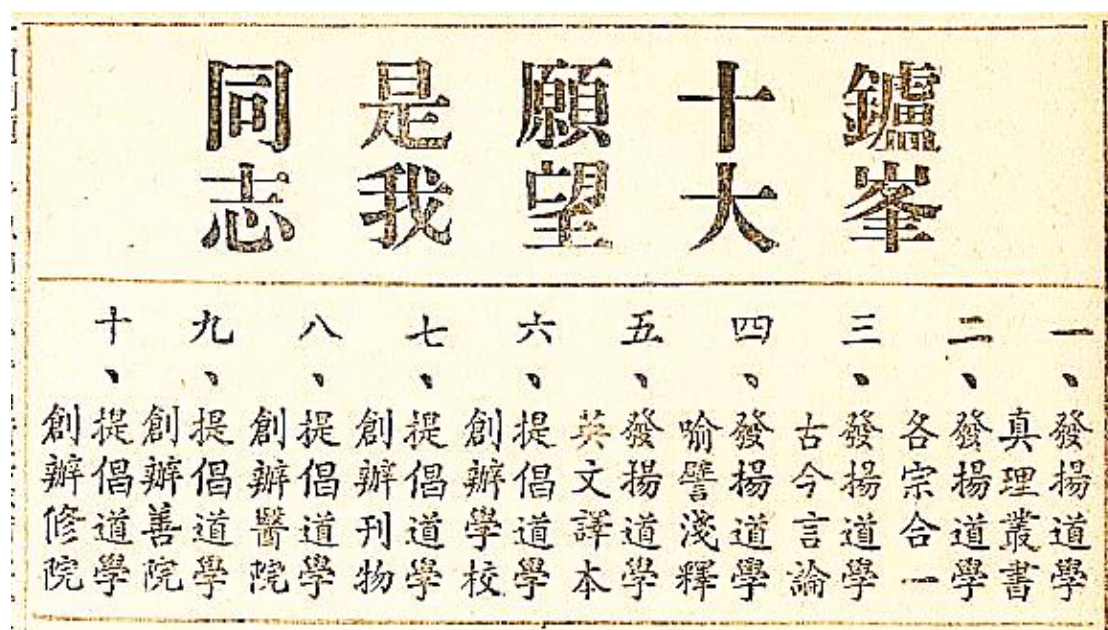 鑪峯
十大
願望
是我
同志
一、發揚道學
真理叢書
二、發揚道學
各宗合一
三、發揚道學
古今言論
四、發揚道學
喻譬淺釋
五、發揚道學
英文譯本
六、提倡道學
創辦學校
七、提倡道學
創辦刊物
八、提倡道學
創辦醫院
九、提倡道學
創辦善院
十、提倡道學
創辦修院